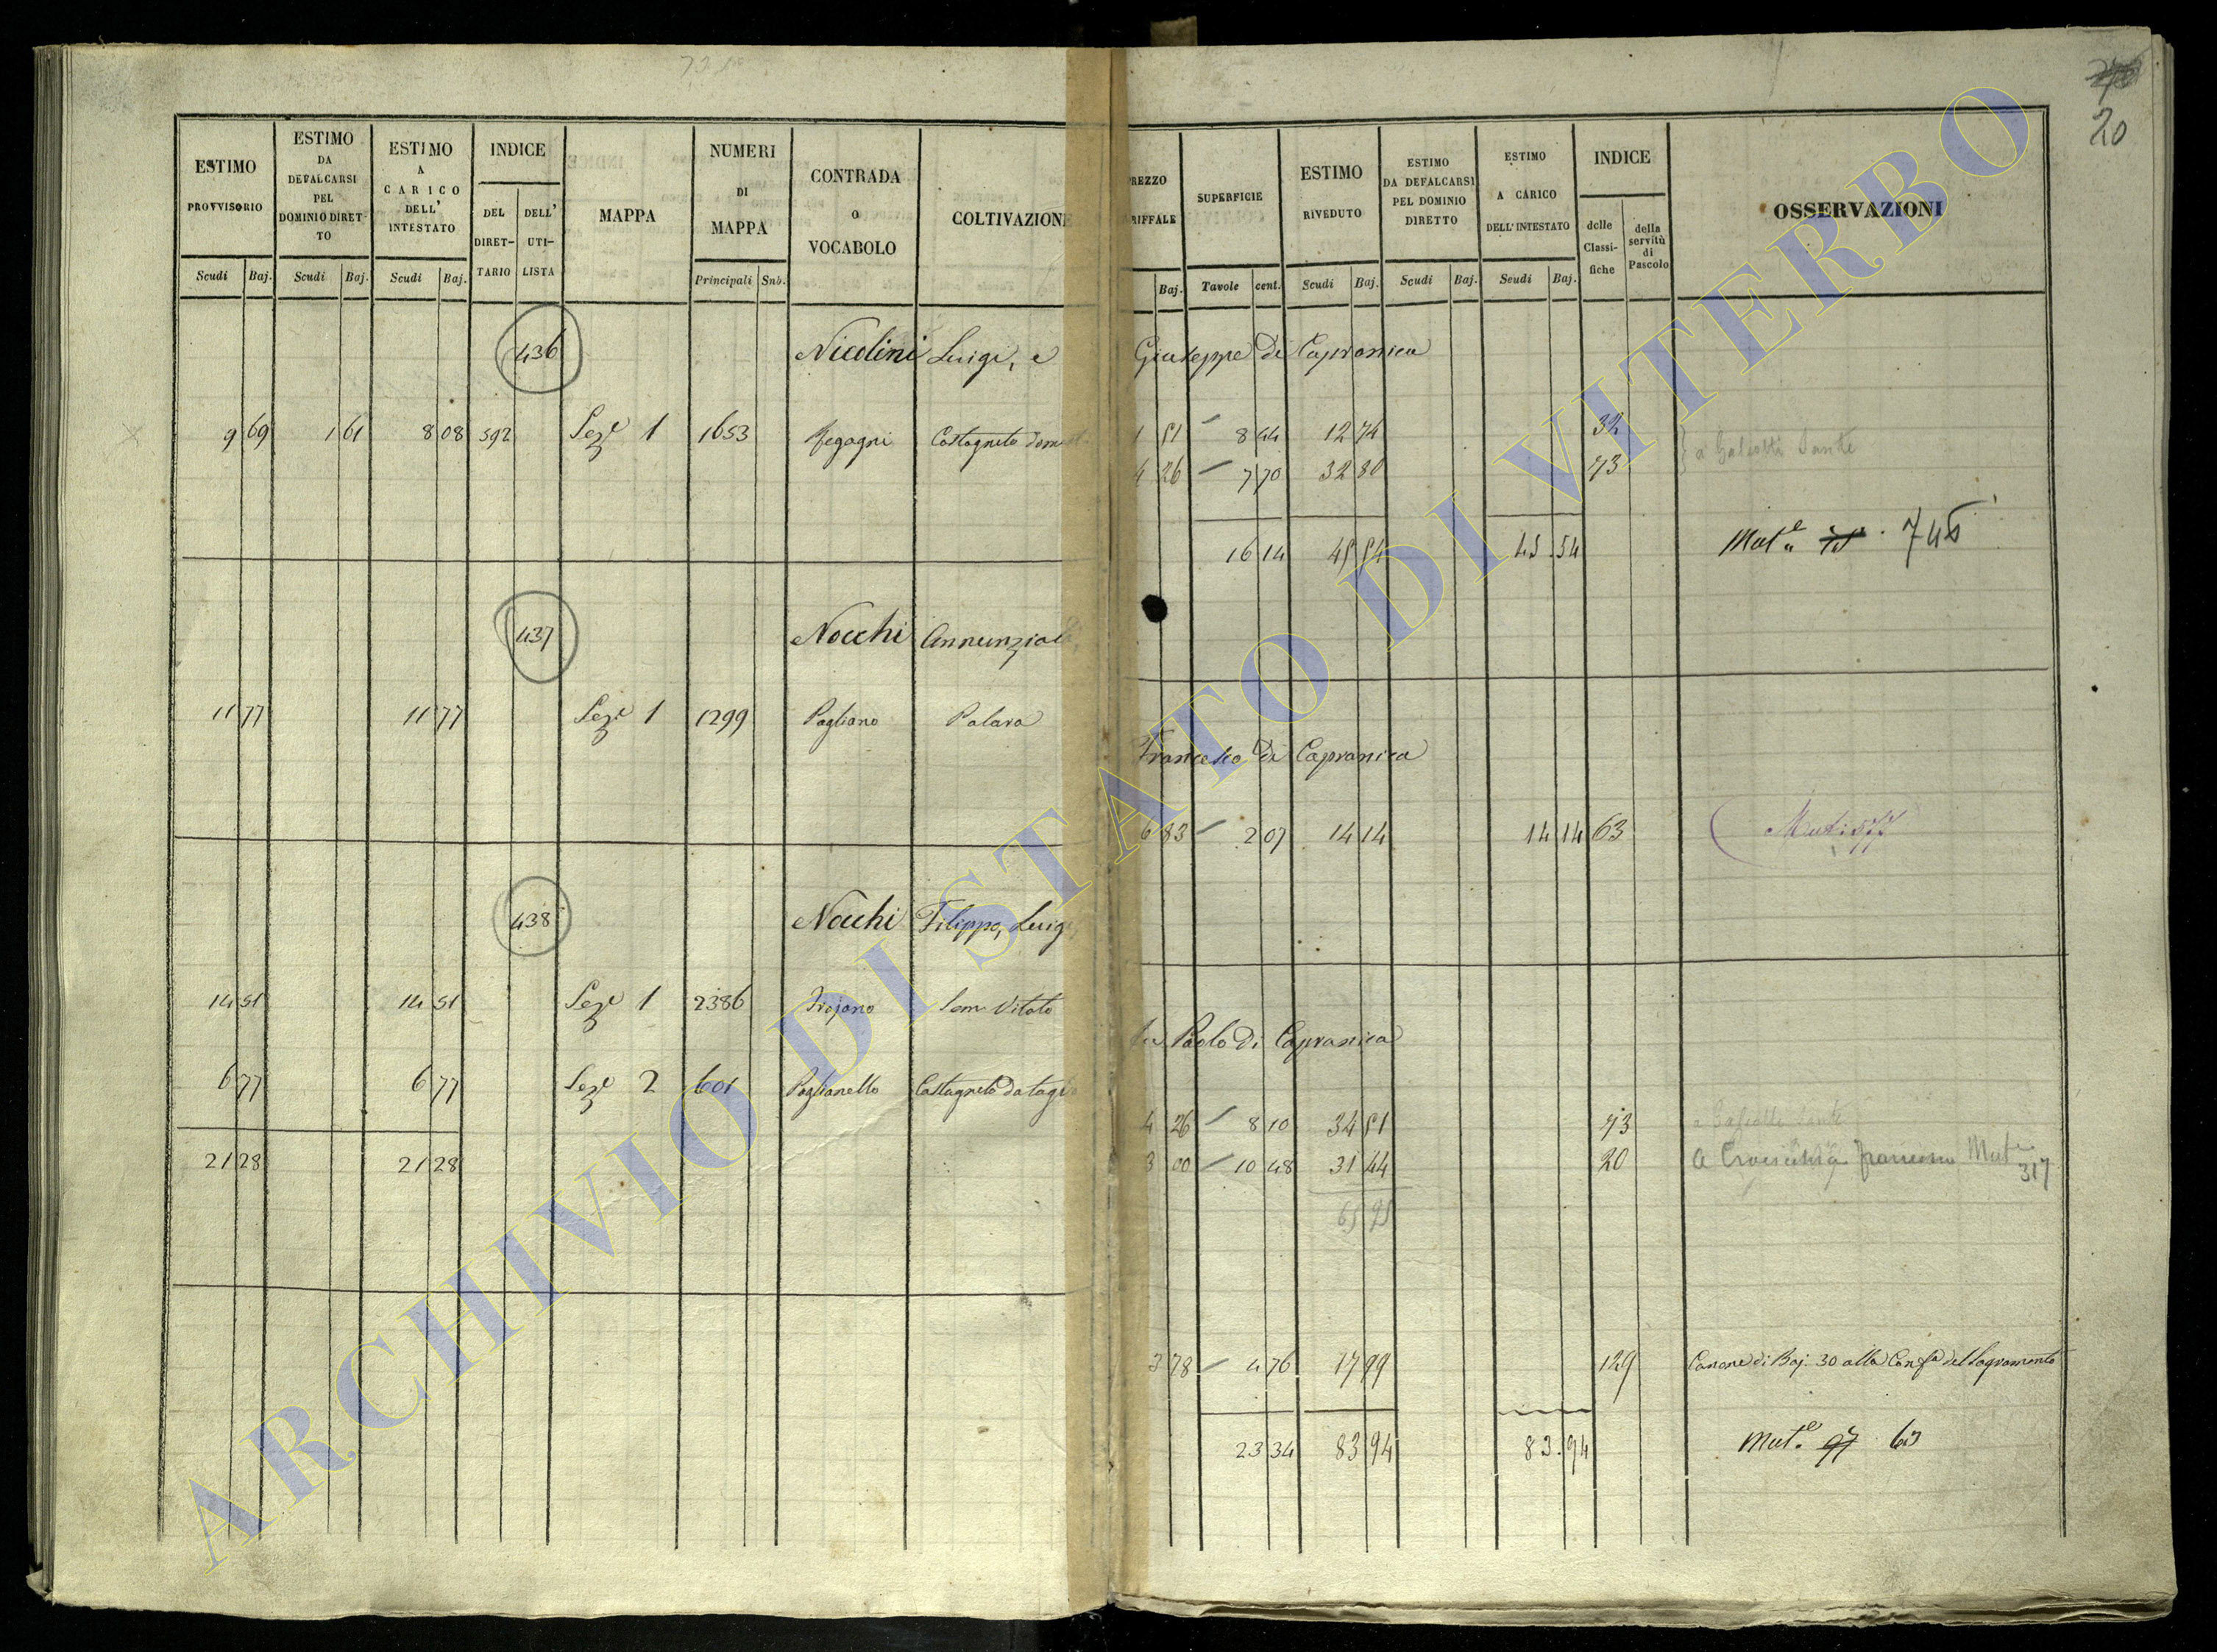 20
ESTIMO PROVVISORIO
ESTIMO DA DEFALCARSI PEL DOMINIO DIRETTO
ESTIMO A CARICO DELL' INTESTATO
INDICE
DEL DIRETTARIO
DELL' UTILISTA
MAPPA
NUMERI DI MAPPA
CONTRADA o VOCABOLO
COLTIVAZIONE
Scudi Baj. Scudi Baj. Scudi Baj. Principali Sub.
436 Nicolini Luigi, e
9 69 1 61 8 08 592 Sez.e 1 1653 Castagneto
437 Nocchi
11 77 11 77 Sez.e 1 1299 Pogliano
438 Nocchi Filippo, Luigi,
14 51 14 51 Sez.e 1 2386 Trojano Sem Vitato
6 77 6 77 Sez.e 2 601 Poglianello Castagneto da
21 28 21 28
REZZO RIFFALE
SUPERFICIE
ESTIMO RIVEDUTO
ESTIMO DA DEFALCARSI PEL DOMINIO DIRETTO
ESTIMO A CARICO DELL' INTESTATO
INDICE
delle Classifiche
della servitù di Pascolo
OSSERVAZIONI
Baj. Tavole cent. Scudi Baj. Scudi Baj. Scudi Baj.
Giuseppe di Capranica
1 51 8 44 12 74 32
4 26 7 70 32 80 73
16 14 45 54 45.54 Mut.e 745
Francesco di Capranica
6 83 2 07 14 14 14 14 63
Paolo di Capranica
4 26 8 10 34 51 73
3 00 10 48 31 44 20 Mut 317
65 95
3 78 4 76 17 99 129 Canone di Baj. 30 alla Conf.a del Sagramento
23 34 83 94 83.94 Mut.e
ARCHIVIO DI STATO DI VITERBO